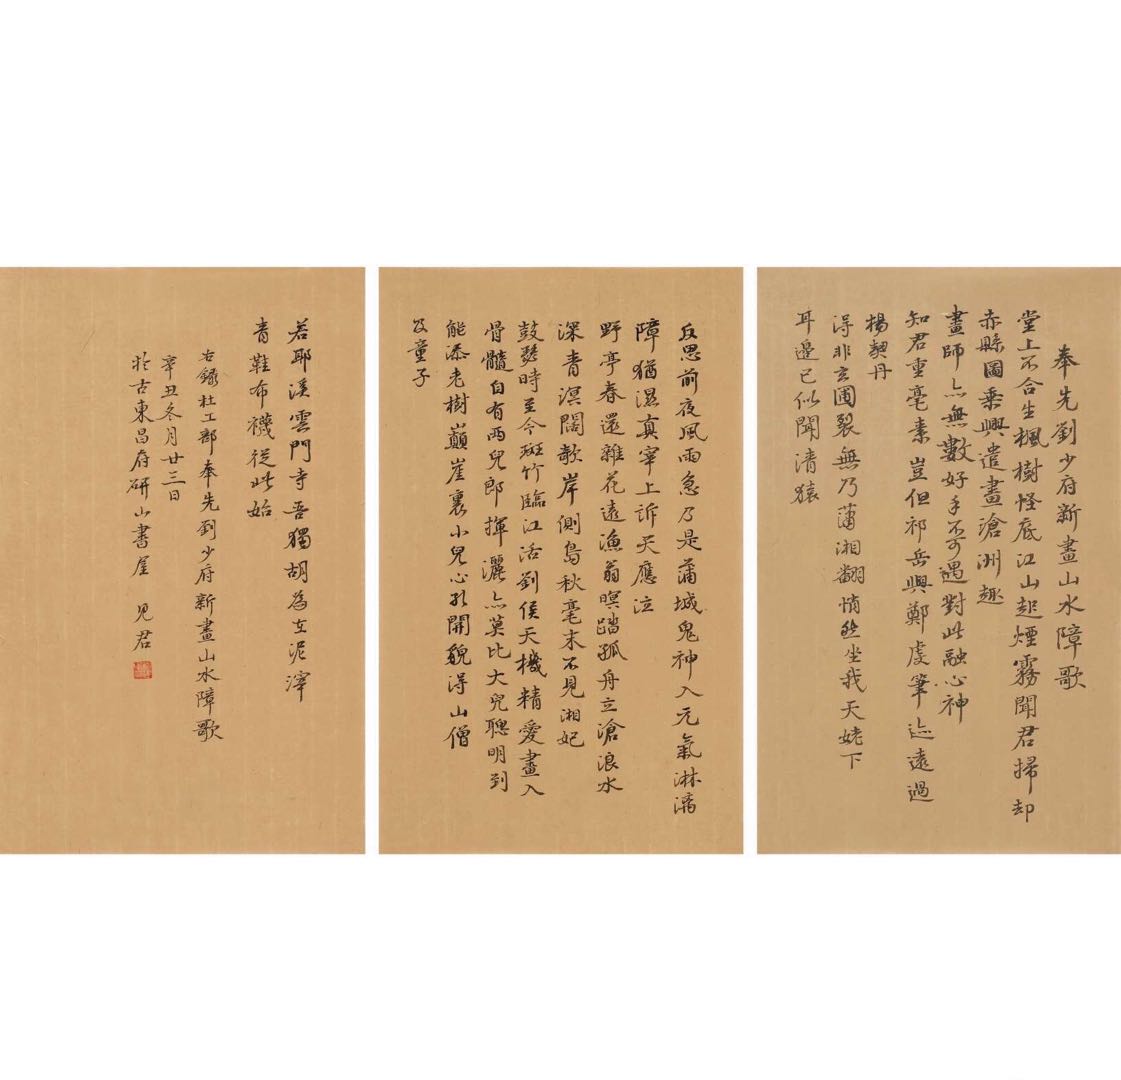 奉先劉少府新畫山水障歌
堂上不合生楓樹怪底江山起煙霧聞君掃却
赤縣圖乘興遣畫滄洲趣
畫師亦無數好手不可遇對此融心神
知君重毫素豈但祁岳與鄭虔筆迹遠過
楊契丹
得非玄圃裂無乃蒲湘翻悄然坐我天姥下
耳邊已似聞清猿
反思前夜風雨急乃是蒲城鬼神入元氣淋漓
障猶濕真宰上訴天應泣
野亭春還雜花遠漁翁暝踏孤舟立滄浪水
深青溟闊欹岸側島秋毫末不見湘妃
鼓瑟時至今斑竹臨江活劉侯天機精愛畫入
骨髓自有兩兒郎揮灑亦莫比大兒聰明到
能添老樹巔崖裏小兒心孔開貌得山僧
及童子
若耶溪雲門寺吾獨胡為在泥滓
青鞋布襪從此始
右錄杜工部奉先劉少府新畫山水障歌
辛丑冬月廿三日
於古東昌府研山書屋 見君